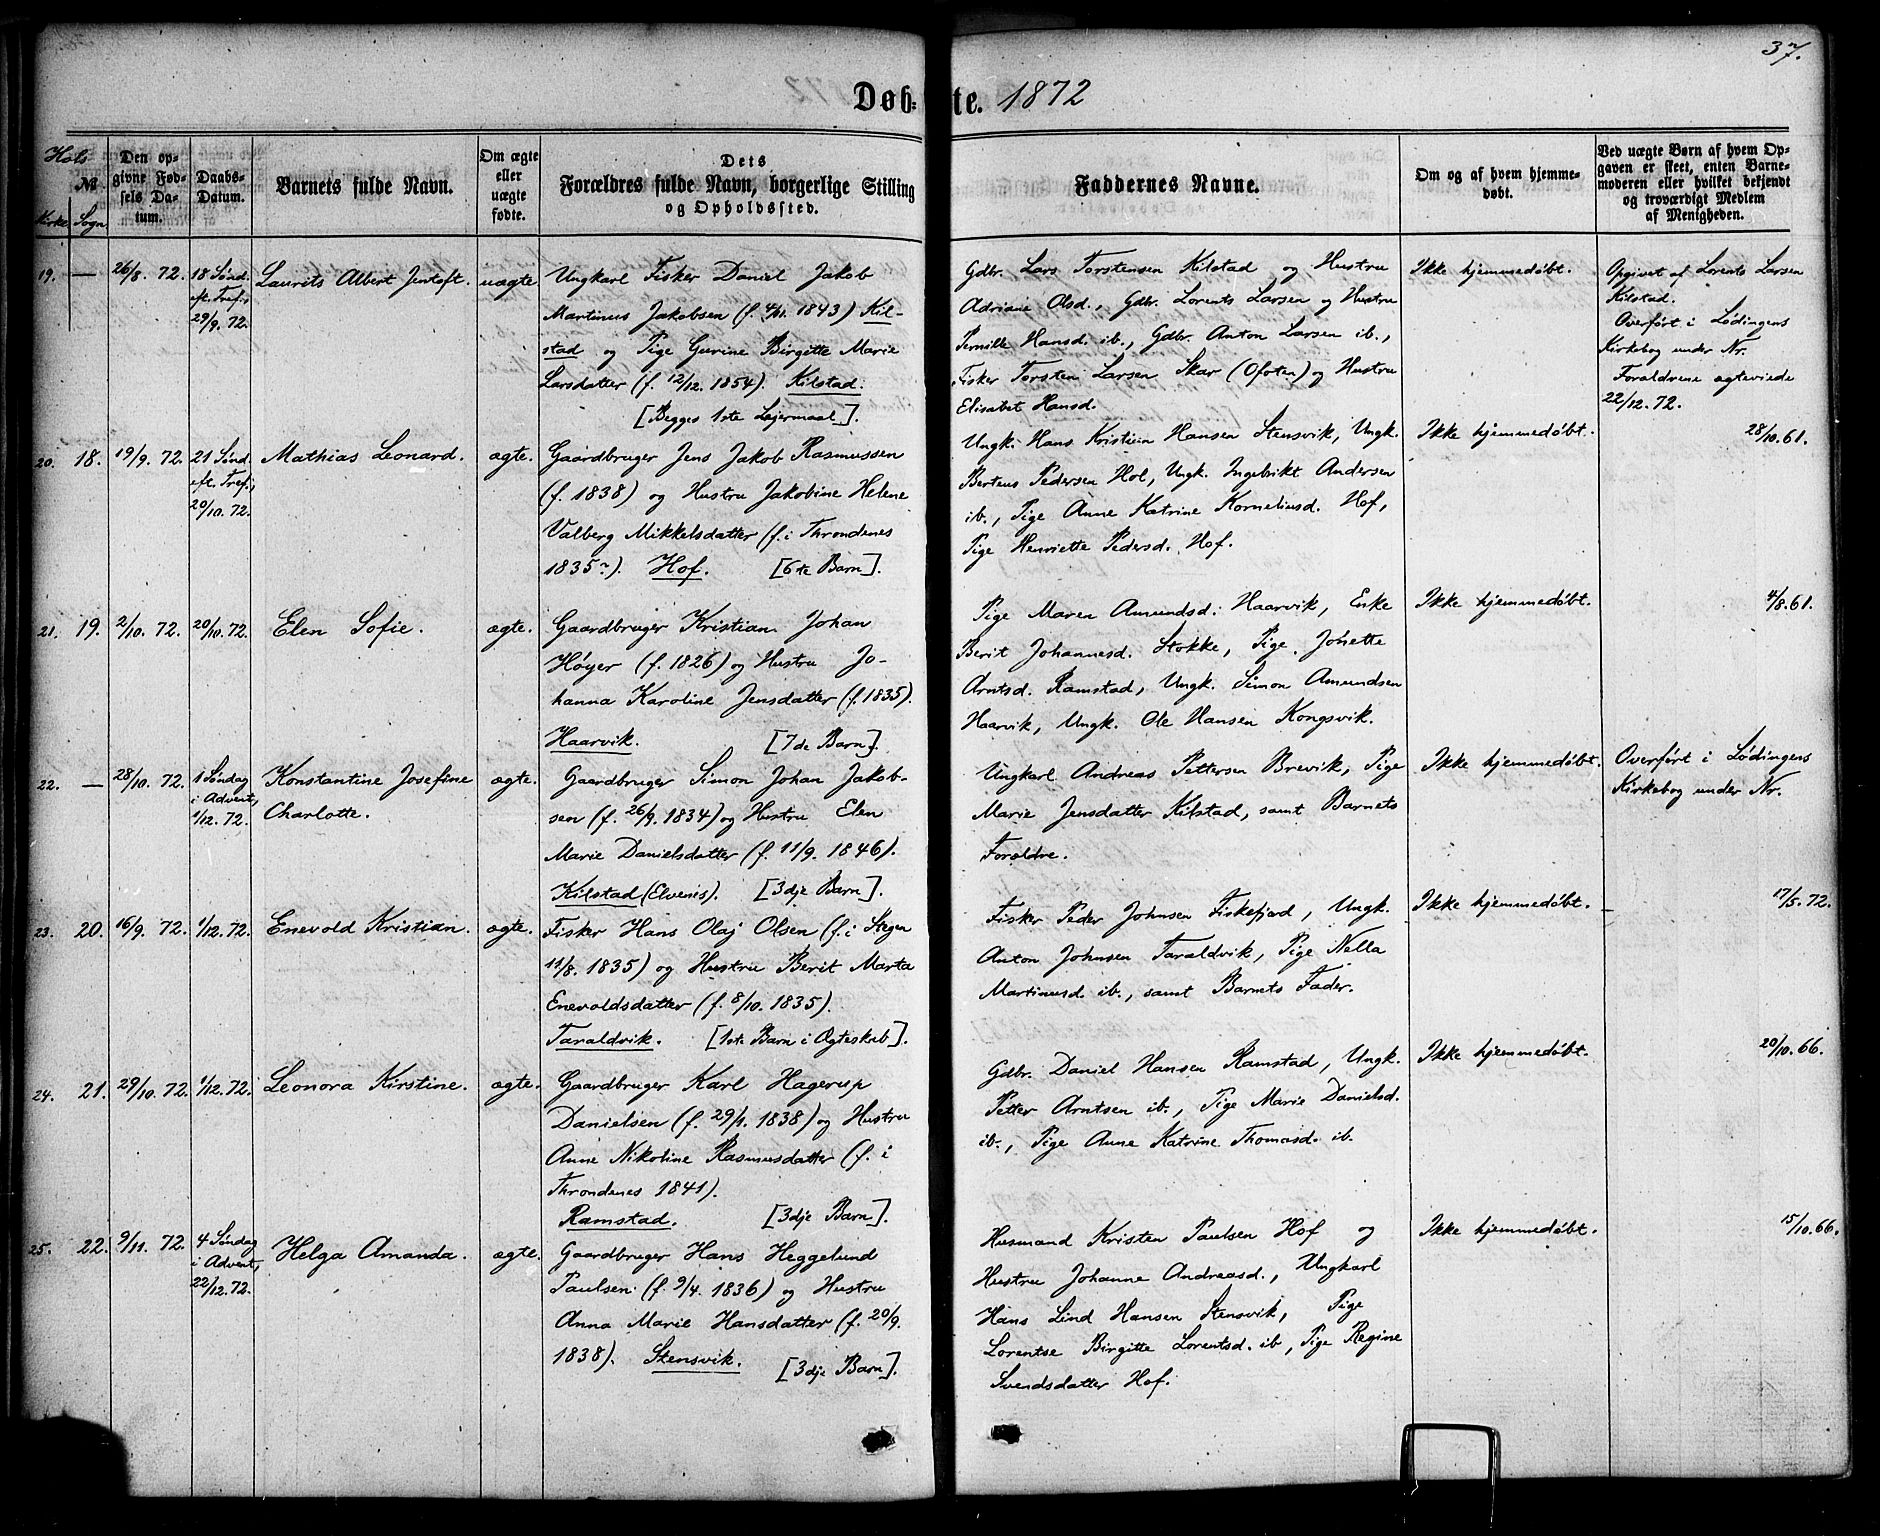 37.
Døb-te. 1872
Hols
№
Kirke Sogn
Den op-
givne Fød-
sels Da-
tum.
Daabs-
Datum.
Barnets fulde Navn.
Om ægte
eller
uægte
fødte.
Dets
Forældres fulde Navn, borgerlige Stilling
og Opholdssted.
Faddernes Navne.
Om og af hvem hjemme-
døbt.
Ved uægte Børn af hvem Op-
gaven er skeet, enten Barne-
moderen eller hvilket bekjendt
og troværdigt Medlem
af Menigheden.
19. — 26/8. 72. 18 Sønd.
eft. Tref.,
29/9. 72.
Laurits Albert Jentoft. uægte
Ungkarl Fisker Daniel Jakob
Martinus Jakobsen (f. 4/11. 1843) Kil-
stad og Pige Gurine Birgitte Marie
Larsdatter (f. 12/12. 1854). Kilstad.
[Begges 1ste Lejermaal].
Gdbr. Lars Torstensen Kilstad og Hustru
Adriane Olsd., Gdbr. Lorents Larsen og Hustru
Pernille Hansd. ib., Gdbr. Anton Larsen ib.,
Fisker Torsten Larsen Skar (Ofoten) og Hustru
Elisabet Hansd.
Ikke hjemmedøbt.
Opgivet af Lorents Larsen
Kilstad.
Overført i Lødingens
Kirkebog under Nr.
Forældrene ægteviede
22/12. 72.
20. 18. 19/9. 72. 21 Sønd.
eft. Tref.,
20/10. 72.
Mathias Leonard. ægte.
Gaardbruger Jens Jakob Rasmussen
(f. 1838) og Hustru Jakobine Helene
Valberg Mikkelsdatter (f. i Throndenes
1835?). Hof. [6te Barn].
Ungk. Hans Kristian Hansen Stensvik, Ungk.
Berteus Pedersen Hol, Ungk. Ingebrikt Andersen
ib., Pige Anne Katrine Korneliusd. Hof,
Pige Henriette Pedersd. Hof.
Ikke hjemmedøbt.
28/10. 61.
21. 19. 2/10. 72. 20/10. 72. Elen Sofie. ægte.
Gaardbruger Kristian Johan
Høyer (f. 1826) og Hustru Jo-
hanna Karoline Jensdatter (f. 1835).
Haarvik. [7de Barn].
Pige Maren Amundsd. Haarvik, Enke
Berit Johannesd. Stokke, Pige Jonette
Arntsd. Ramstad, Ungk. Simon Amundsen
Haarvik, Ungk. Ole Hansen Kongsvik.
Ikke hjemmedøbt.
4/8. 61.
22. — 28/10. 72. 1 Søndag
i Advent,
1/12. 72.
Konstantine Josefine
Charlotte.
ægte.
Gaardbruger Simon Johan Jakob-
sen (f. 26/9. 1834) og Hustru Elen
Marie Danielsdatter (f. 11/9. 1846).
Kilstad (Elvenis). [3dje Barn].
Ungkarl Andreas Pettersen Brevik, Pige
Marie Jensdatter Kilstad, samt Barnets
Forældre.
Ikke hjemmedøbt.
Overført i Lødingens
Kirkebog under Nr.
23. 20. 16/9. 72. 1/12. 72. Enevold Kristian. ægte.
Fisker Hans Olaj Olsen (f. i Stegen
11/8. 1835) og Hustru Berit Marta
Enevoldsdatter (f. 8/10. 1835).
Taraldvik. [1ste Barn i Ægteskab].
Fisker Peder Johnsen Fiskefjord, Ungk.
Anton Johnsen Taraldvik, Pige Nella
Martinusd. ib., samt Barnets Fader.
Ikke hjemmedøbt.
17/5. 72.
24. 21. 29/10. 72. 1/12. 72. Leonora Kirstine. ægte.
Gaardbruger Karl Hagerup
Danielsen (f. 29/1. 1838) og Hustru
Anne Nikoline Rasmusdatter (f. i
Throndenes 1841).
Ramstad. [3dje Barn].
Gdbr. Daniel Hansen Ramstad, Ungk.
Petter Arntsen ib., Pige Marie Danielsd.
ib., Pige Anne Katrine Thomasd. ib.
Ikke hjemmedøbt.
20/10. 66.
25. 22. 9/11. 72. 4 Søndag
i Advent,
22/12. 72.
Helga Amanda. ægte.
Gaardbruger Hans Heggelund
Paulsen (f. 9/4. 1836) og Hustru
Anna Marie Hansdatter (f. 20/9.
1838). Stensvik. [3dje Barn].
Husmand Kristen Paulsen Hof og
Hustru Johanne Andreasd., Ungkarl
Hans Lind Hansen Stensvik, Pige
Lorentse Birgitte Lorentsd. ib., Pige Regine
Svendsdatter Hof.
Ikke hjemmedøbt.
15/10. 66.